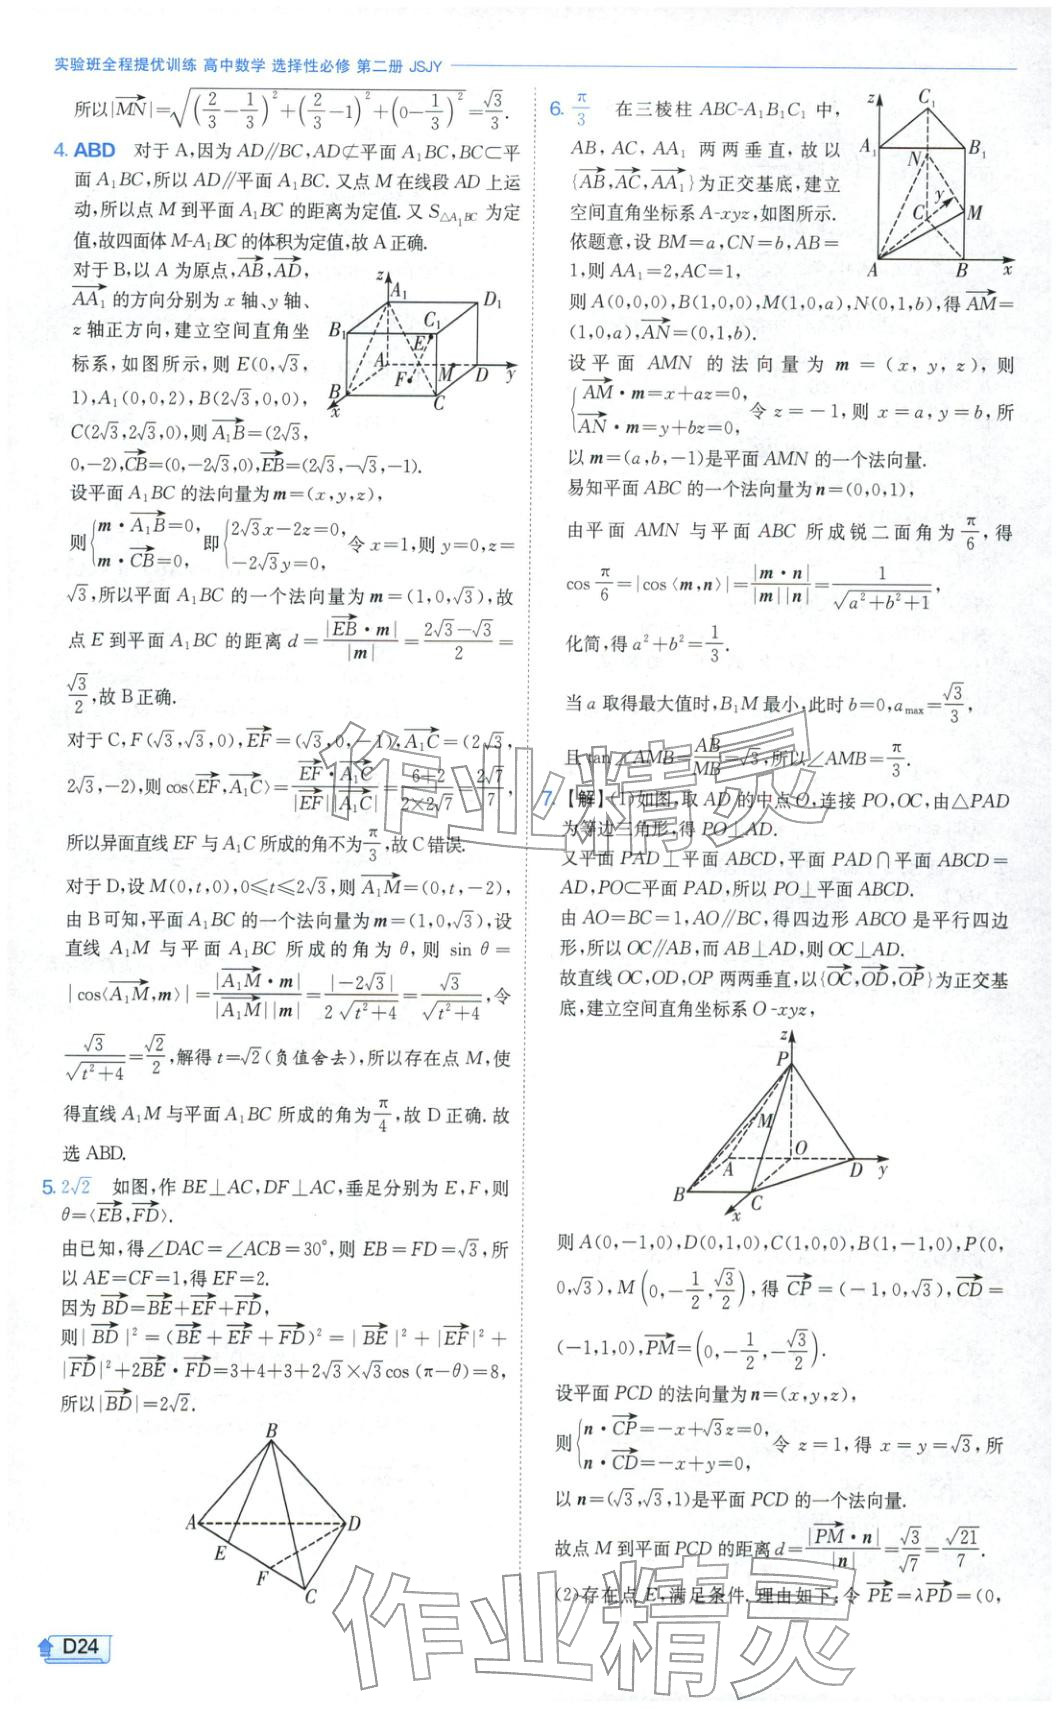 实验班全程提优训练 高中数学 选择性必修 第二册 JSJY
所以|MN|=√((2/3-1/3)²+(2/3-1)²+(0-1/3)²)=√3/3.
4. ABD 对于A,因为AD∥BC,AD⊄平面A₁BC,BC⊂平
面A₁BC,所以AD∥平面A₁BC.又点M在线段AD上运
动,所以点M到平面A₁BC的距离为定值.又S△A₁BC为定
值,故四面体M-A₁BC的体积为定值,故A正确.
对于B,以A为原点,AB,AD,
AA₁的方向分别为x轴、y轴、
z轴正方向,建立空间直角坐
标系,如图所示,则E(0,√3,
1),A₁(0,0,2),B(2√3,0,0),
C(2√3,2√3,0),则A₁B=(2√3,
0,-2),CB=(0,-2√3,0),EB=(2√3,-√3,-1).
z
A₁
D₁
B₁
C₁
E
A
F
M
D
y
B
x
C
设平面A₁BC的法向量为m=(x,y,z),
则{m·A₁B=0, m·CB=0, 即{2√3x-2z=0, -2√3y=0, 令x=1,则y=0,z=
√3,所以平面A₁BC的一个法向量为m=(1,0,√3),故
点E到平面A₁BC的距离d=|EB·m|/|m|=(2√3-√3)/2=
√3/2,故B正确.
对于C,F(√3,√3,0),EF=(√3,0,-1),A₁C=(2√3,
2√3,-2),则cos⟨EF,A₁C⟩=EF·A₁C/(|EF||A₁C|)=(6+2)/(2×2√7)=2√7/7,
所以异面直线EF与A₁C所成的角不为π/3,故C错误.
对于D,设M(0,t,0),0≤t≤2√3,则A₁M=(0,t,-2),
由B可知,平面A₁BC的一个法向量为m=(1,0,√3),设
直线A₁M与平面A₁BC所成的角为θ,则sin θ=
|cos⟨A₁M,m⟩|=|A₁M·m|/(|A₁M||m|)=|-2√3|/(2√(t²+4))=√3/√(t²+4),令
√3/√(t²+4)=√2/2,解得t=√2(负值舍去),所以存在点M,使
得直线A₁M与平面A₁BC所成的角为π/4,故D正确.故
选ABD.
5. 2√2 如图,作BE⊥AC,DF⊥AC,垂足分别为E,F,则
θ=⟨EB,FD⟩.
由已知,得∠DAC=∠ACB=30°,则EB=FD=√3,所
以AE=CF=1,得EF=2.
因为BD=BE+EF+FD,
则|BD|²=(BE+EF+FD)²=|BE|²+|EF|²+
|FD|²+2BE·FD=3+4+3+2√3×√3cos(π-θ)=8,
所以|BD|=2√2.
B
A
D
E
F
C
D24
6. π/3 在三棱柱ABC-A₁B₁C₁中,
AB,AC,AA₁两两垂直,故以
{AB,AC,AA₁}为正交基底,建立
空间直角坐标系A-xyz,如图所示.
依题意,设BM=a,CN=b,AB=
1,则AA₁=2,AC=1,
z
C₁
A₁
N
B₁
y
C
M
A
B
x
则A(0,0,0),B(1,0,0),M(1,0,a),N(0,1,b),得AM=
(1,0,a),AN=(0,1,b).
设平面AMN的法向量为m=(x,y,z),则
{AM·m=x+az=0, AN·m=y+bz=0, 令z=-1,则x=a,y=b,所
以m=(a,b,-1)是平面AMN的一个法向量.
易知平面ABC的一个法向量为n=(0,0,1),
由平面AMN与平面ABC所成锐二面角为π/6,得
cos π/6=|cos⟨m,n⟩|=|m·n|/(|m||n|)=1/√(a²+b²+1),
化简,得a²+b²=1/3.
当a取得最大值时,B₁M最小,此时b=0,a_max=√3/3,
且tan∠AMB=AB/MB=√3,所以∠AMB=π/3.
7. 【解】(1)如图,取AD的中点O,连接PO,OC,由△PAD
为等边三角形,得PO⊥AD.
又平面PAD⊥平面ABCD,平面PAD∩平面ABCD=
AD,PO⊂平面PAD,所以PO⊥平面ABCD.
由AO=BC=1,AO∥BC,得四边形ABCO是平行四边
形,所以OC∥AB,而AB⊥AD,则OC⊥AD.
故直线OC,OD,OP两两垂直,以{OC,OD,OP}为正交基
底,建立空间直角坐标系O-xyz,
z
P
M
A
O
D
y
B
C
x
则A(0,-1,0),D(0,1,0),C(1,0,0),B(1,-1,0),P(0,
0,√3),M(0,-1/2,√3/2),得CP=(-1,0,√3),CD=
(-1,1,0),PM=(0,-1/2,-√3/2).
设平面PCD的法向量为n=(x,y,z),
则{n·CP=-x+√3z=0, n·CD=-x+y=0, 令z=1,得x=y=√3,所
以n=(√3,√3,1)是平面PCD的一个法向量.
故点M到平面PCD的距离d=|PM·n|/|n|=√3/√7=√21/7.
(2)存在点E,满足条件.理由如下:令PE=λPD=(0,
作业精灵
作业精灵